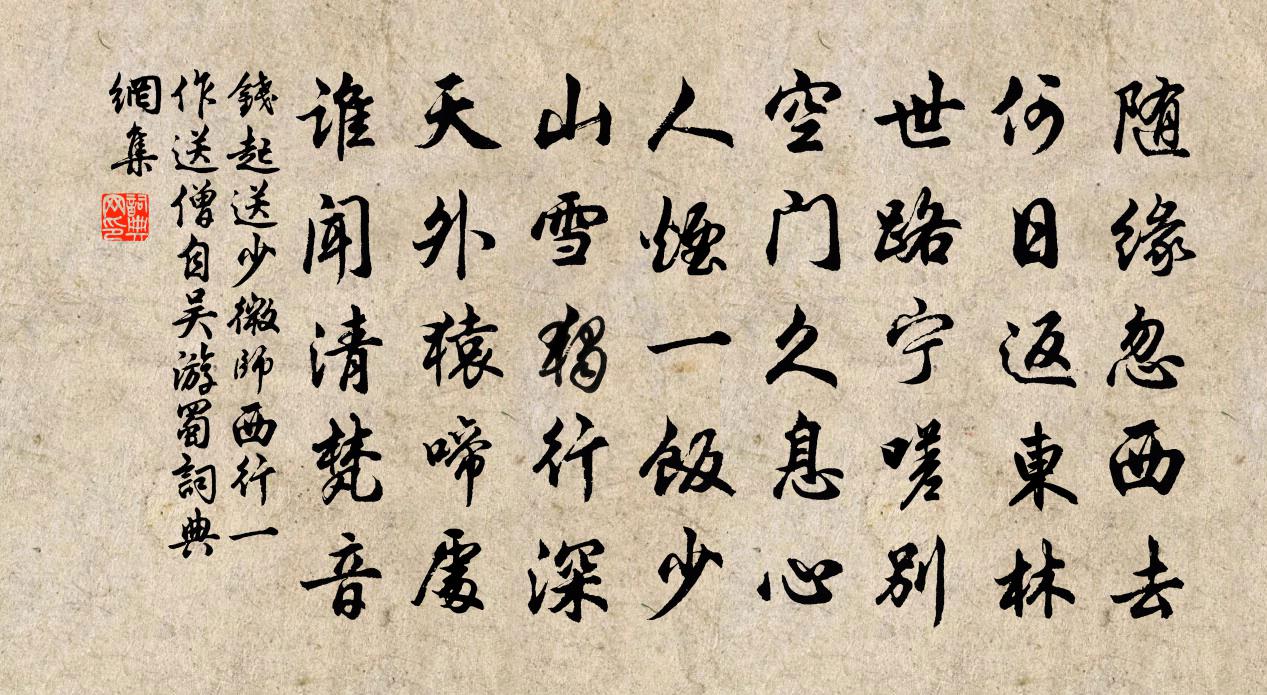 随缘忽西去
何日返東林
世路宁嗟别
空门久息心
人煙一飯少
山雪獨行深
天外猿啼處
谁闻清梵音
錢起送少微師西行一
作送僧自吴游蜀詞典
網集
詞典
网印